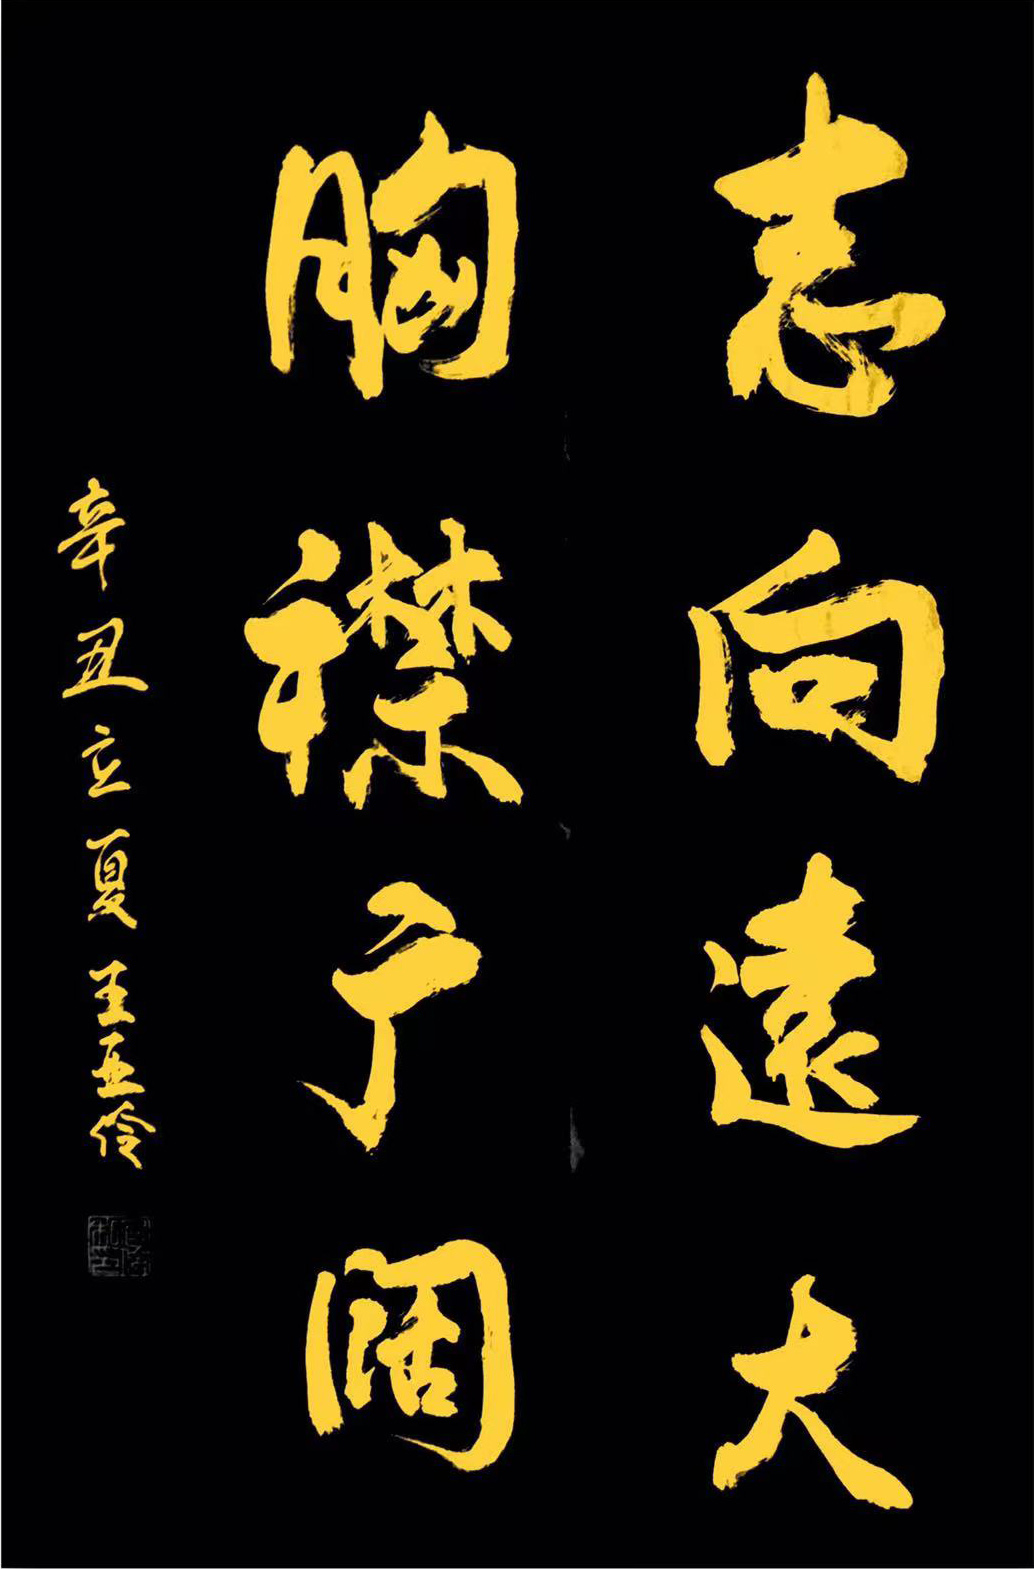 志向遠大
胸襟广阔
辛丑立夏王亚伶